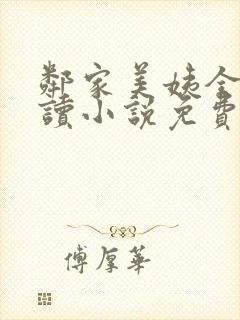 鄰家美姨全
讀小說免費
傅厚華